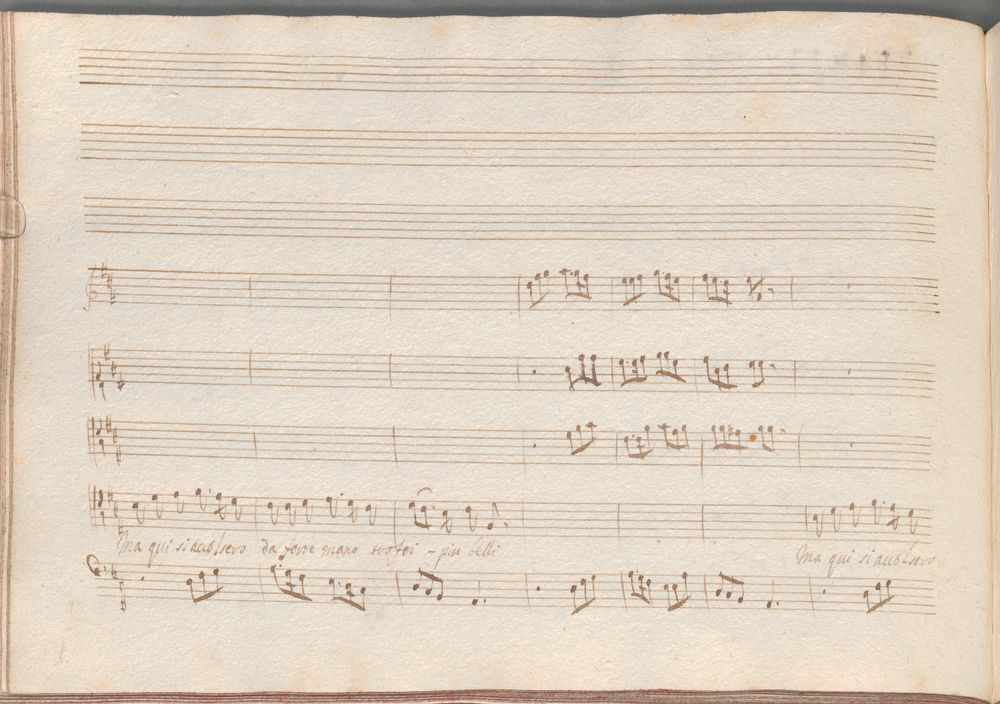 Ma qui si acco/sero da forte mano trofei - piu belli Ma qui si acco/sero